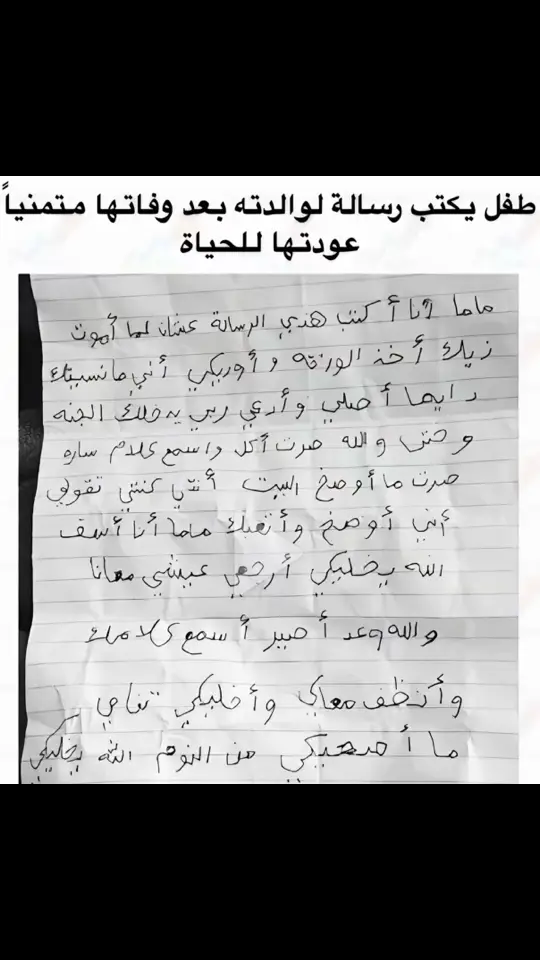 طفل يكتب رسالة لوالدته بعد وفاتها متمنياً
عودتها للحياة
ماما أنا أكتب هذي الرسالة عشان لما أموت
زيك أخذ الورقه وأوريكي أني مانسيتك
دايما أصلي وأدعي ربي يدخلك الجنه
وحتى والله صرت أكل واسمع كلام ساره
صرت ما أوصخ البيت أنتي كنتي تقولي
أني أوصخ وأتعبك ماما أنا أسف
الله يخليكي أرجعي عيشي معانا
والله وعد أصير أسمع كلامك
وأنظف معاكي وأخليكي تنامي
ما أصحيكي من النوم الله يخليكي